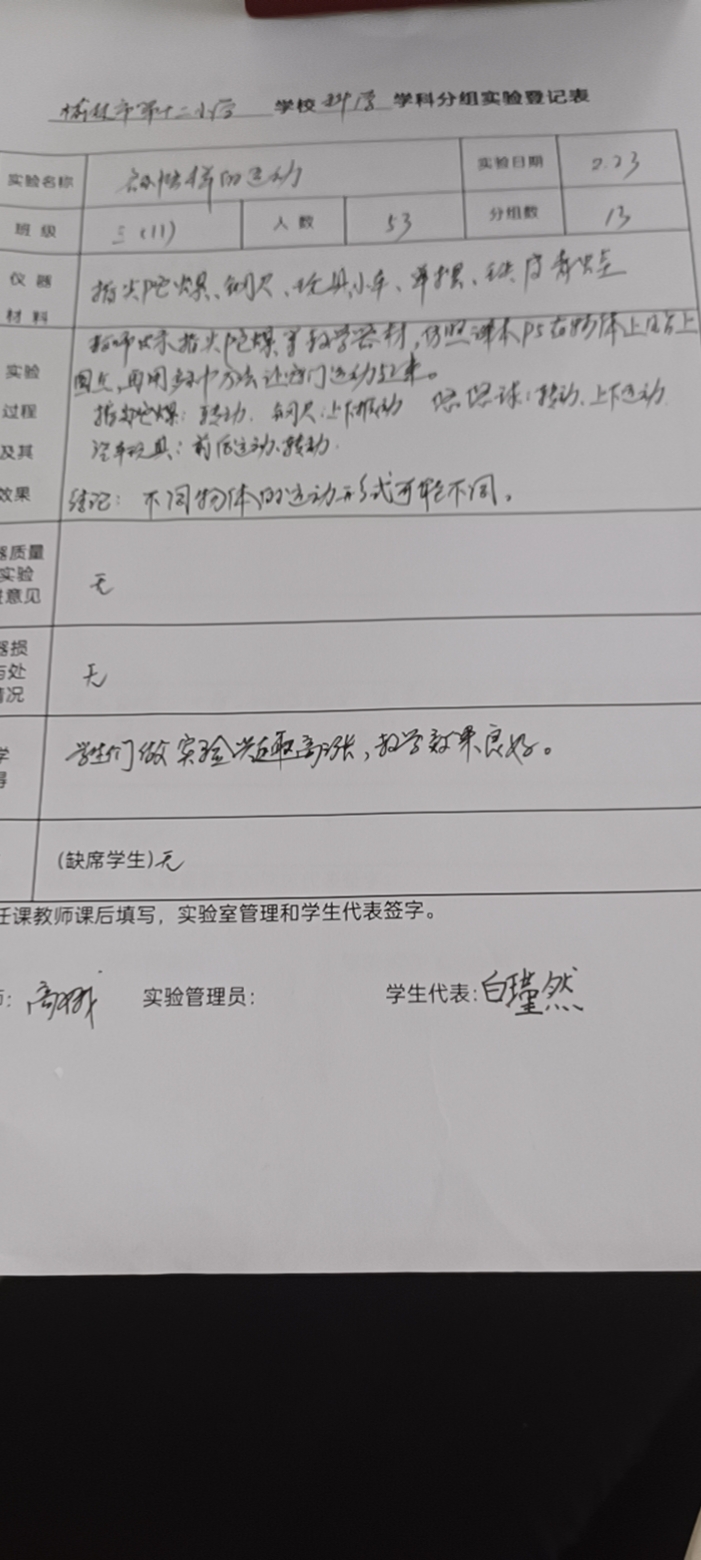 榆林市第十二小学 学校 科学 学科分组实验登记表
实验名称 各种各样的运动 实验日期 2.23
班级 三(11) 人数 53 分组数 13
仪器 指尖陀螺、钢尺、玩具小车、单摆、
材料
教师出示指尖陀螺等教学器材,仿照课本P5在物体上贴上
实验 圆点,再用多种方法让它们运动起来。
过程 指尖陀螺:转动. 钢尺:上下振动 悠悠球:转动、上下运动
及其 汽车玩具:前后运动、转动.
效果 结论:不同物体的运动形式可能不同。
器质量
实验
意见 无
器损
与处 无
情况
学 学生们做实验兴趣高涨,教学效果良好。
得
(缺席学生)无
任课教师课后填写,实验室管理和学生代表签字。
实验管理员: 学生代表:白瑾然